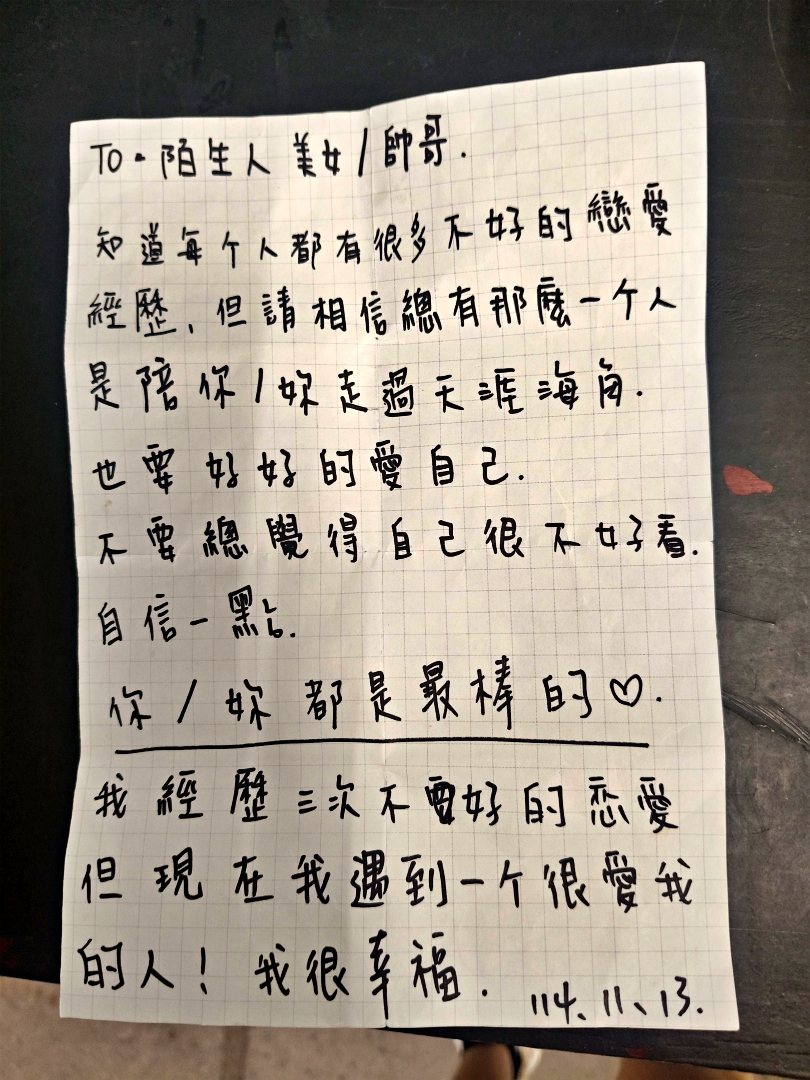 TO. 陌生人 美女/帥哥.
知道每个人都有很多不好的戀愛
經歷,但請相信總有那麼一个人
是陪你/妳走過天涯海角.
也要好好的愛自己.
不要總覺得自己很不好看.
自信一點.
你/妳都是最棒的♡.
我經歷三次不要好的恋愛
但現在我遇到一个很愛我
的人!我很幸福.
114、11、13.